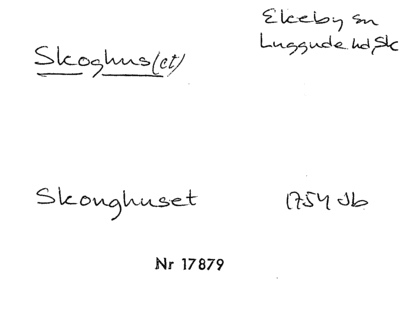 Ekeby sn
Skoghus(et)
Luggude hd, Sk
Skonghuset
1754 Jb
Nr 17879